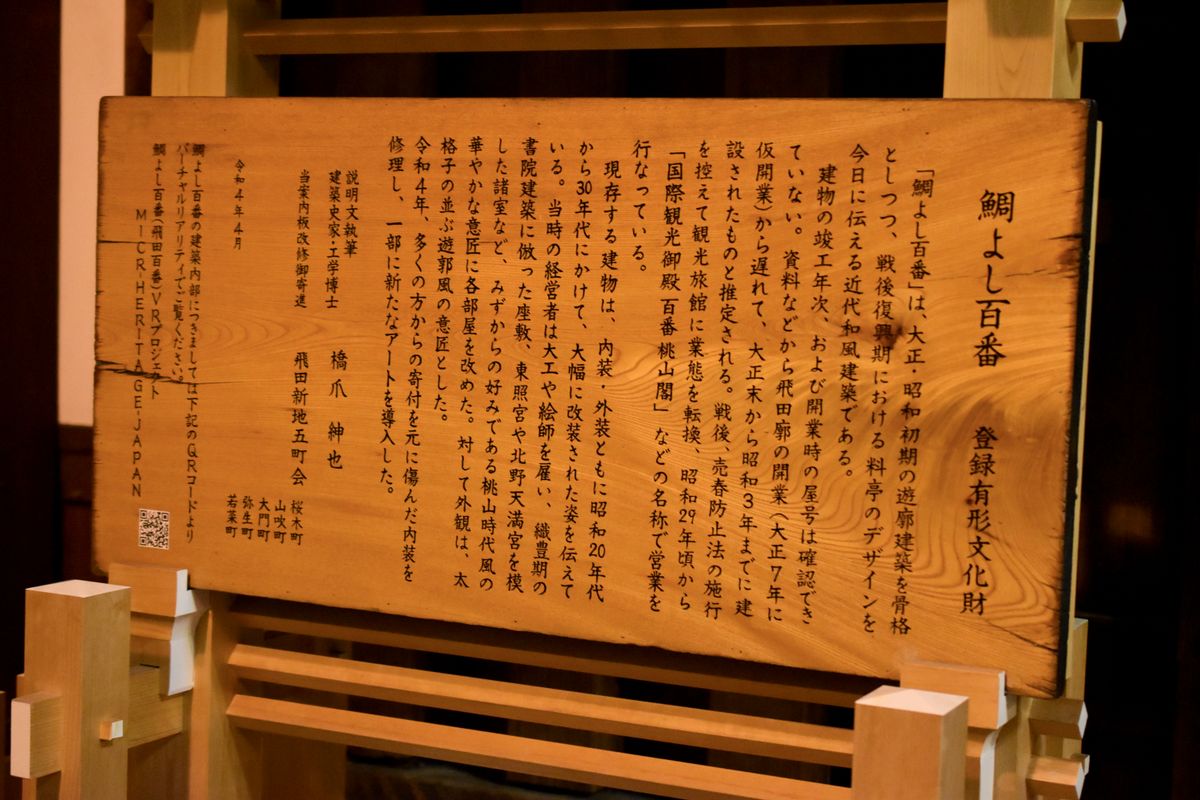 鯛よし百番　登録有形文化財
「鯛よし百番」は、大正・昭和初期の遊廓建築を骨格
としつつ、戦後復興期における料亭のデザインを
今日に伝える近代和風建築である。
建物の竣工年次、および開業時の屋号は確認でき
ていない。資料などから飛田廓の開業（大正7年に
仮開業）から遅れて、大正末から昭和3年までに建
設されたものと推定される。戦後、売春防止法の施行
を控えて観光旅館に業態を転換、昭和29年頃から
「国際観光御殿 百番 桃山閣」などの名称で営業を
行なっている。
現存する建物は、内装・外装ともに昭和20年代
から30年代にかけて、大幅に改装された姿を伝えて
いる。当時の経営者は大工や絵師を雇い、織豊期の
書院建築に倣った座敷、東照宮や北野天満宮を模
した諸室など、みずからの好みである桃山時代風の
華やかな意匠に各部屋を改めた。対して外観は、太
格子の並ぶ遊郭風の意匠とした。
令和4年、多くの方からの寄付を元に傷んだ内装を
修理し、一部に新たなアートを導入した。
説明文執筆
建築史家・工学博士　橋爪　紳也
当案内板改修御寄進　飛田新地五町会
桜木町
山吹町
大門町
弥生町
若菜町
令和4年4月
鯛よし百番の建築内部につきましては下記のQRコードより
バーチャルリアリティでご覧ください。
鯛よし百番(飛田百番)VRプロジェクト
MICR-HERITAGE-JAPAN